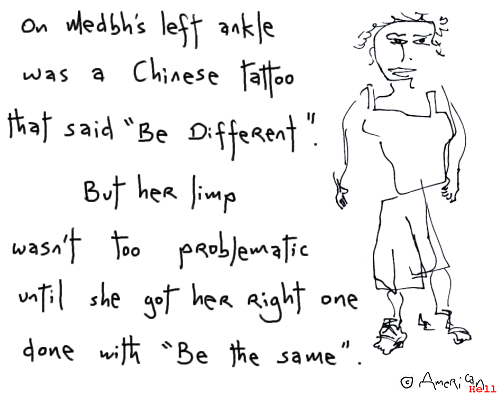 On Medbh's left ankle
was a Chinese tattoo
that said "Be Different".
But her limp
wasn't too problematic
until she got her right one
done with "Be the same".
© American Hell